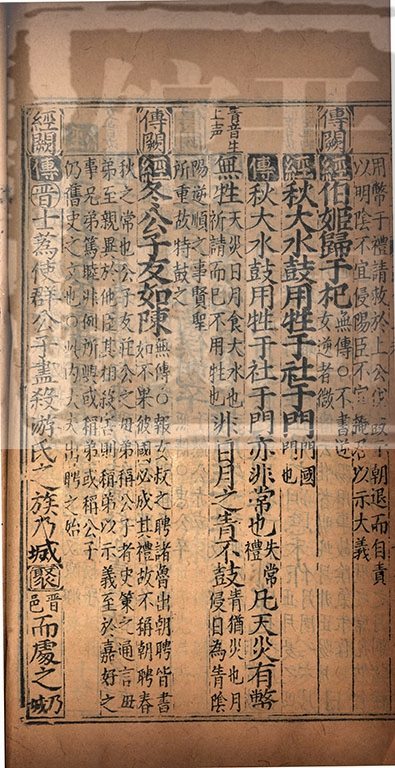 用幣于禮請救於上公伐鼓于朝退而自責
以明陰不宜侵陽臣不宜掩君以示大義
傳闕
經伯姬歸于杞無傳○不書逆女逆者微
經秋大水鼓用牲于社于門門國門也
傳秋大水鼓用牲于社于門亦非常也失常禮凡天災有幣
眚音生上声
無牲天災日月食大水也祈請而已不用牲也非日月之眚不鼓眚猶災也月侵日為眚陰
陽逆順之事賢聖所重故特鼓之
傳闕
經冬公子友如陳無傳○報女叔之聘諸魯出朝聘皆書如不果彼國必成其禮故不稱朝聘春
秋之常也公子友莊公之母弟稱公子者史策之通言毋
弟至親異於他臣其相殺害則稱弟以示義至於嘉好之
事兄弟篤睦非例所興或稱弟或稱公子
仍舊史之文也○此內大夫出聘之始
經闕
傳晉士蒍使群公子盡殺游氏之族乃城聚晉邑而處之乃城